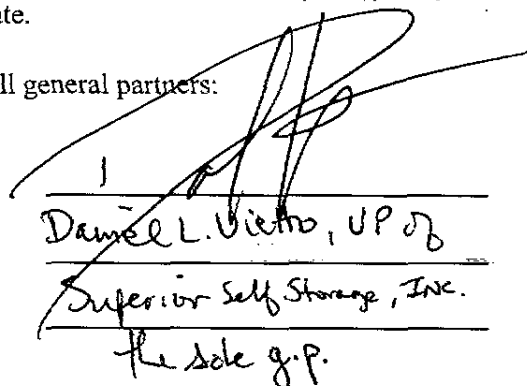 ate.
ll general partners:
Daniel L. Vietto, VP of
Superior Self Storage, Inc.
the sole g.p.